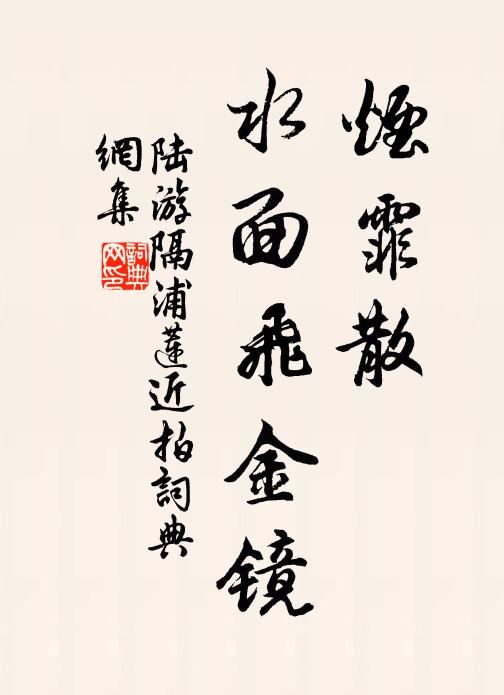 煙霏散
水面飛金鏡
陆游隔浦蓮近拍詞典
網集
詞典网印